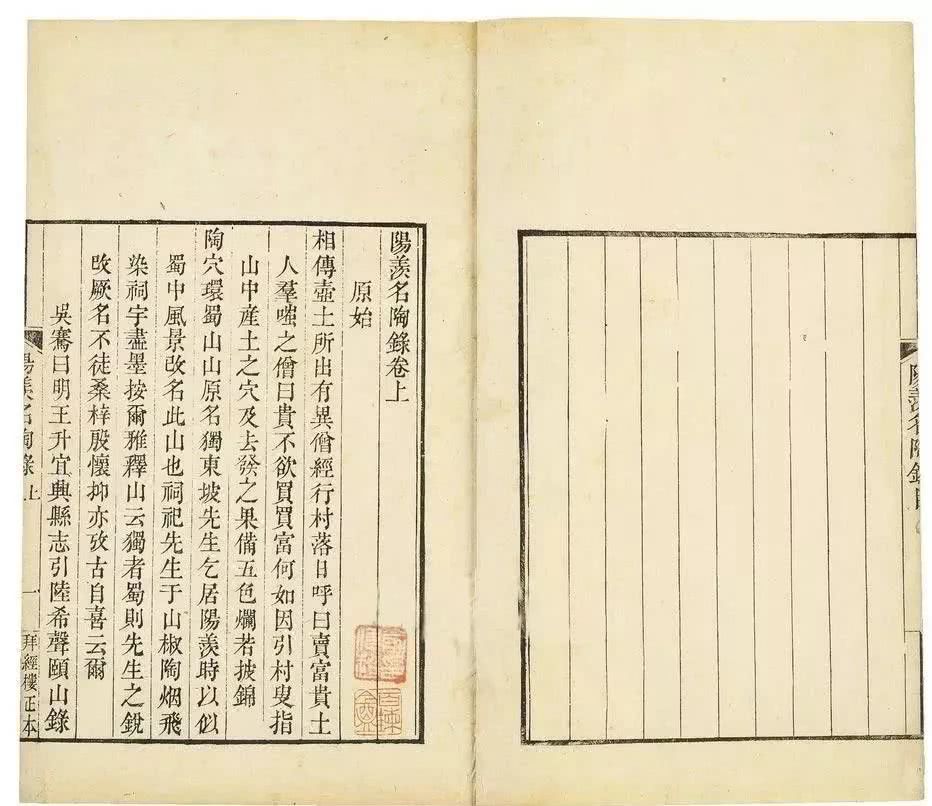 陽羨名陶錄
陽羨名陶錄卷上
原始
相傳壺土所出有異僧經行村落日呼曰賣富貴土
人羣嗤之僧曰貴不欲買買富何如因引村叟指
山中産土之穴及去發之果備五色爛若披錦
陶穴環蜀山山原名獨東坡先生乞居陽羨時以似
蜀中風景改名此山也祠祀先生于山椒陶烟飛
染祠宇盡墨按爾雅釋山云獨者蜀則先生之銳
改厥名不徒桑梓殷懷抑亦攷古自喜云爾
吳騫曰明王升宜興縣志引陸希聲頤山錄
陽羨名陶錄 上 一 拜經樓正本